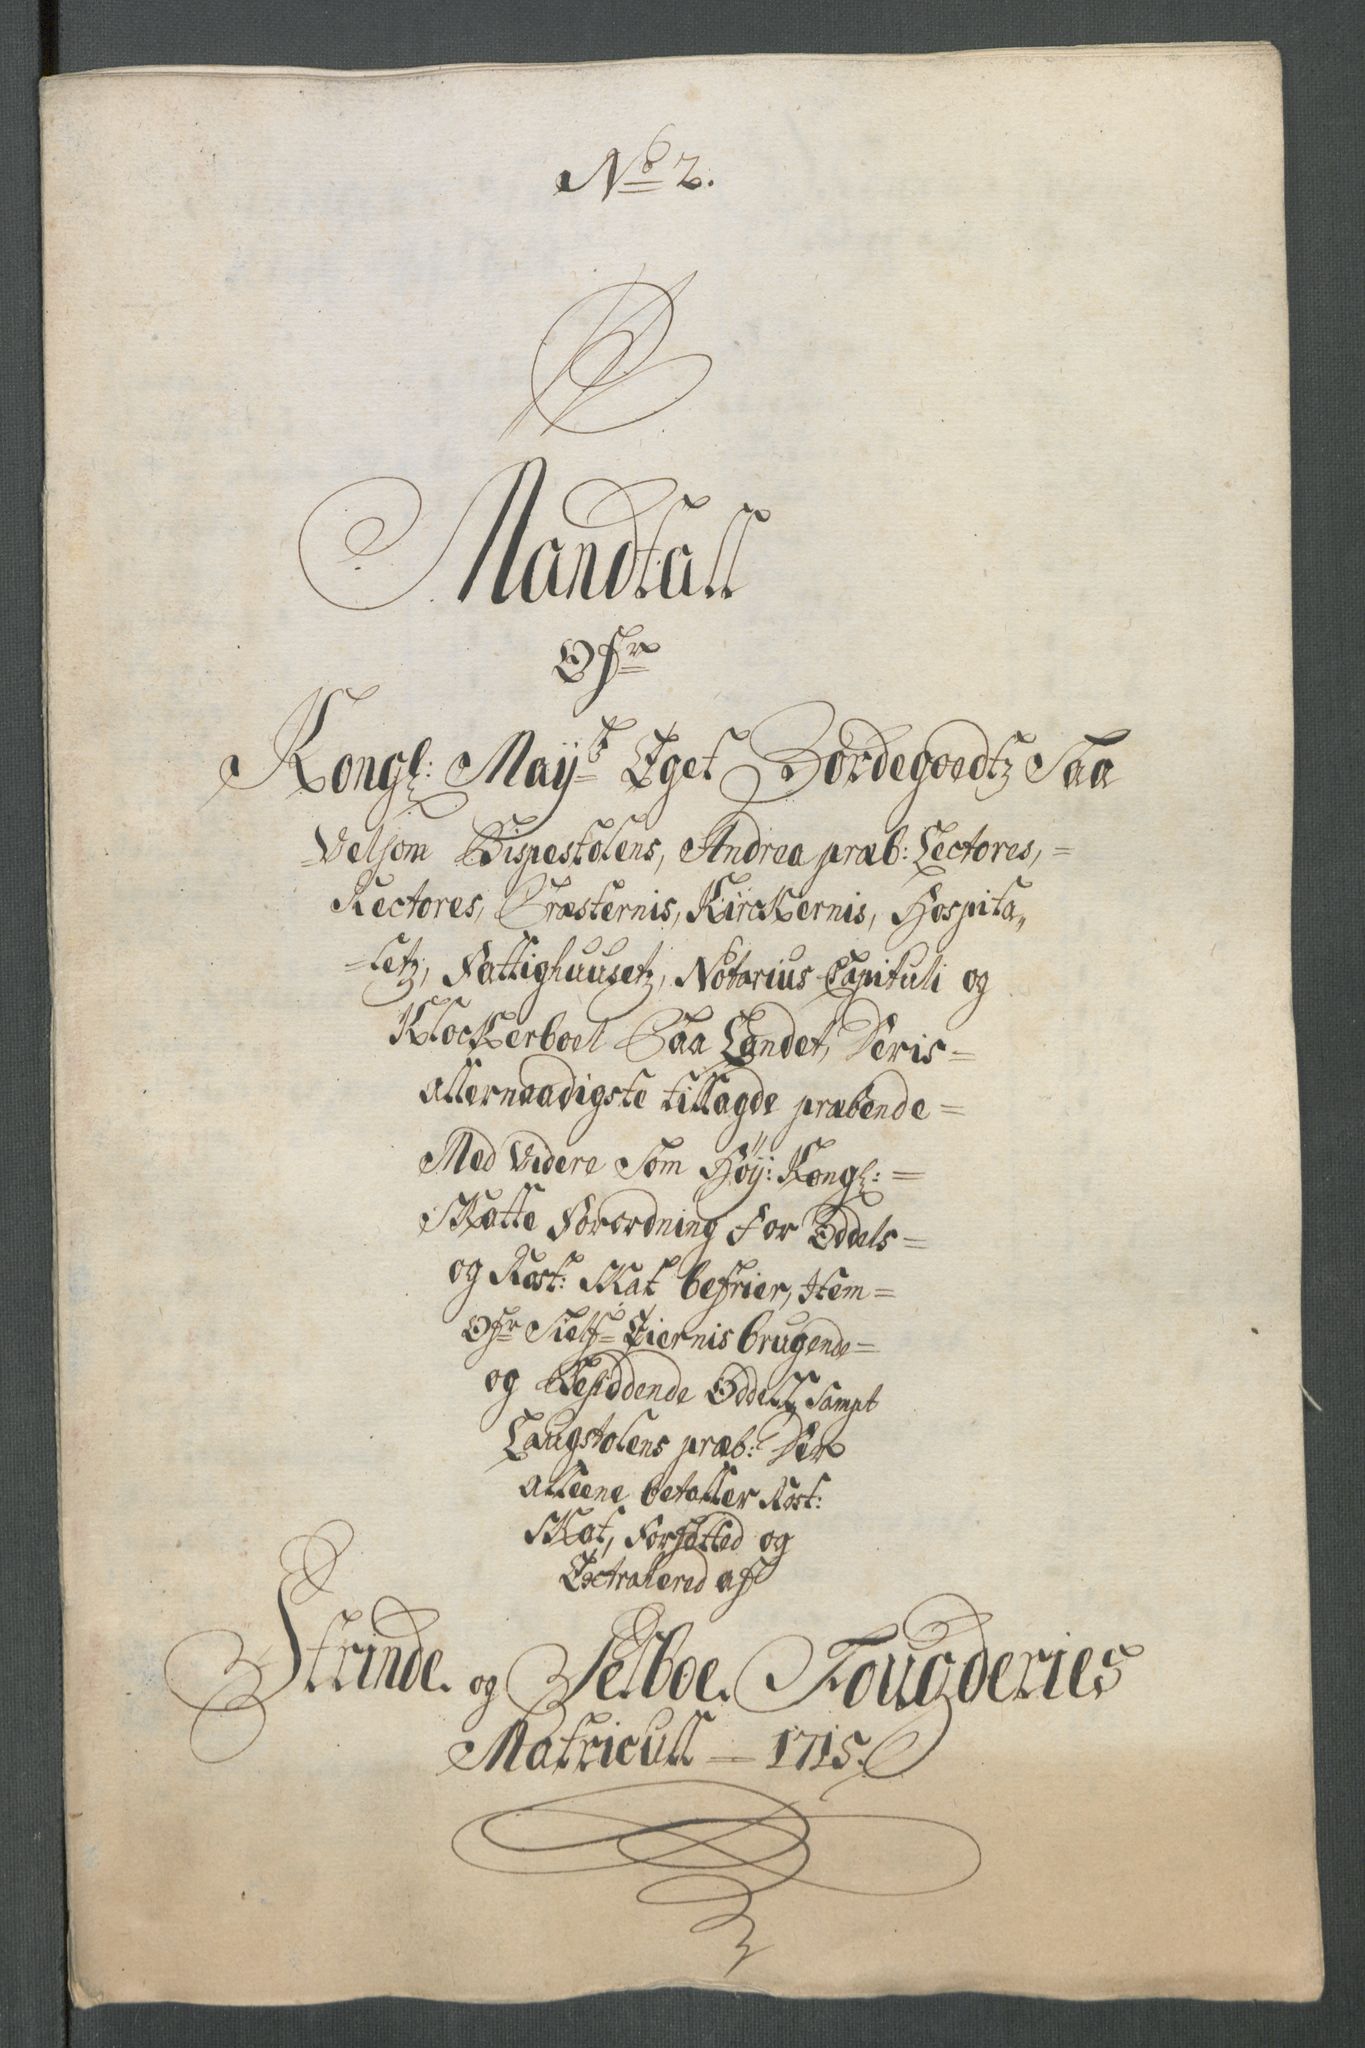 No 2.
Mandtall
Ofr
Kongl: Maÿtz Eget Bordegoedtz Saa
Velsom Bispestolens, Andrea præb: Lectores,=
Rectores, Præsternis, Kirckernis, Hospita„
=letz, Fattighuusetz, Notarius Capituli og
Klockerboel Paa Landet, Deris=
allernaadigste tillagde præbende=
Med Videre Som Höÿ: Kongl: =
Skatte Forordning for Oddels=
og Rost: Skat befrier, Item=
Ofr Sielf= Eiernis brugende=
og Besiddende Oddell, Sampt
Laugstolens præb: Der
alleene betaller Rost:
Skat, Forfatted og
Extrahered af
Strinde og Selboe Fougderies
Matricull = 1715.